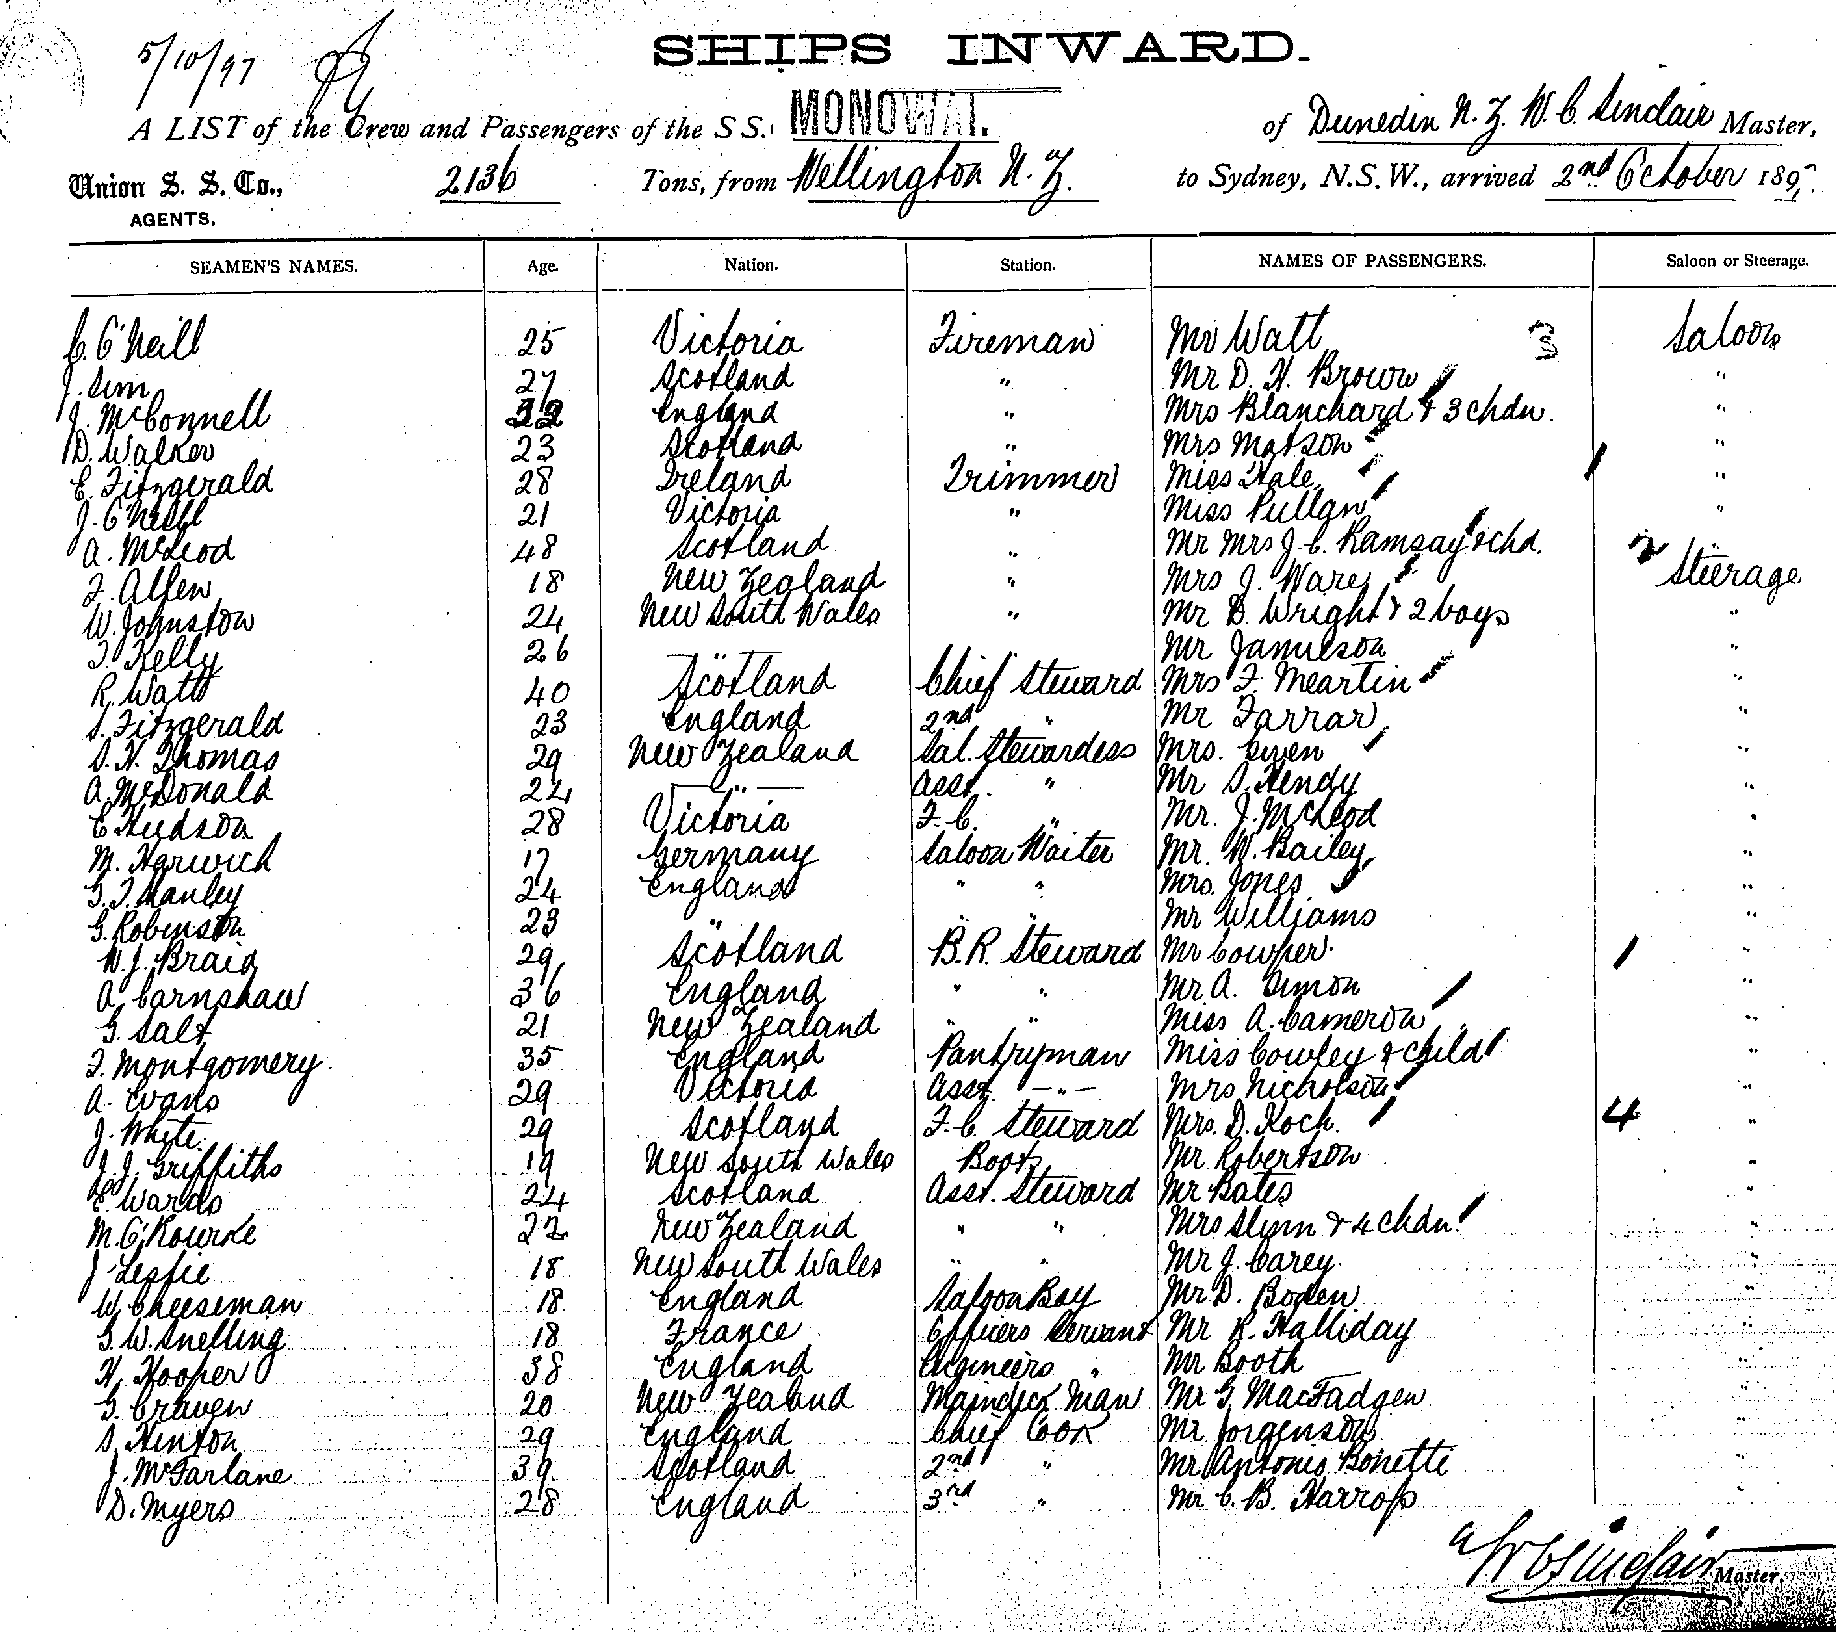 5/10/97
SHIPS INWARD.
A LIST of the Crew and Passengers of the S S. MONOWAI. of Dunedin N. Z. W. C. Sinclair Master,
Union S. S. Co., 2136 Tons, from Wellington N. Z. to Sydney, N.S.W., arrived 2nd October 189
AGENTS.
SEAMEN'S NAMES. Age. Nation. Station. NAMES OF PASSENGERS. Saloon or Steerage.
C. O'Neill 25 Victoria Fireman Mr Watt 3 Saloon
J. Sim 27 Scotland " Mr D. H. Brown "
J. McConnell England " Mrs Blanchard & 3 chdn. "
D. Walker 23 Scotland " Mrs Matson "
E. Fitzgerald 28 Ireland Trimmer Miss Hale "
J. O'Neill 21 Victoria " Miss Pullan "
A. McLeod 48 Scotland " Mr Mrs J. C. Ramsay & chd. 2
F. Allen 18 New Zealand " Mrs J. Ware Steerage
W. Johnston 24 New South Wales " Mr D. Wright & 2 boys "
T. Kelly 26 " Mr Jamieson "
R. Watt 40 Scotland Chief Steward Mrs F. Meartin "
S. Fitzgerald 23 England 2nd " Mr Farrar "
S. H. Thomas 29 New Zealand Sal. Stewardess Mrs. Owen "
A. McDonald 24 " Asst. " Mr S. Hendy "
E. Hudson 28 Victoria F. C. " Mr. J. McLeod "
M. Harwich 17 Germany Saloon Waiter Mr. W. Bailey "
G. T. Hanley 24 England " " Mrs. Jones "
G. Robinson 23 " " " Mr Williams "
W. J. Braid 29 Scotland B. R. Steward Mr Cowper "
A. Carnshaw 36 England " " Mr A. Simon "
G. Salt 21 New Zealand " " Miss A. Cameron "
F. Montgomery 35 England Pantryman Miss Cowley & child "
A. Evans 29 Victoria Asst. " Mrs Nicholson "
J. Whyte 29 Scotland F. C. Steward Mrs. D. Koch. 4 "
J. J. Griffiths 19 New South Wales Boots Mr Robertson "
E. Wards 24 Scotland Asst. Steward Mr Bates "
M. O'Rourke 22 New Zealand " " Mrs Slinn & 4 chdn. "
J. Leslie 18 New South Wales " " Mr J. Carey "
W. Cheeseman 18 England Saloon Boy Mr D. Boden "
G. W. Snelling 18 France Officers Servant Mr R. Halliday "
H. Hooper 38 England Engineers " Mr Booth "
G. Craven 20 New Zealand Maindeck Man Mr G. MacFadgen "
S. Hinton 29 England Chief Cook Mr Jorgenson "
J. McFarlane 39 Scotland 2nd " Mr Antonio Bonette "
D. Myers 28 England 3rd " Mr C. B. Harrop "
W C Sinclair Master.